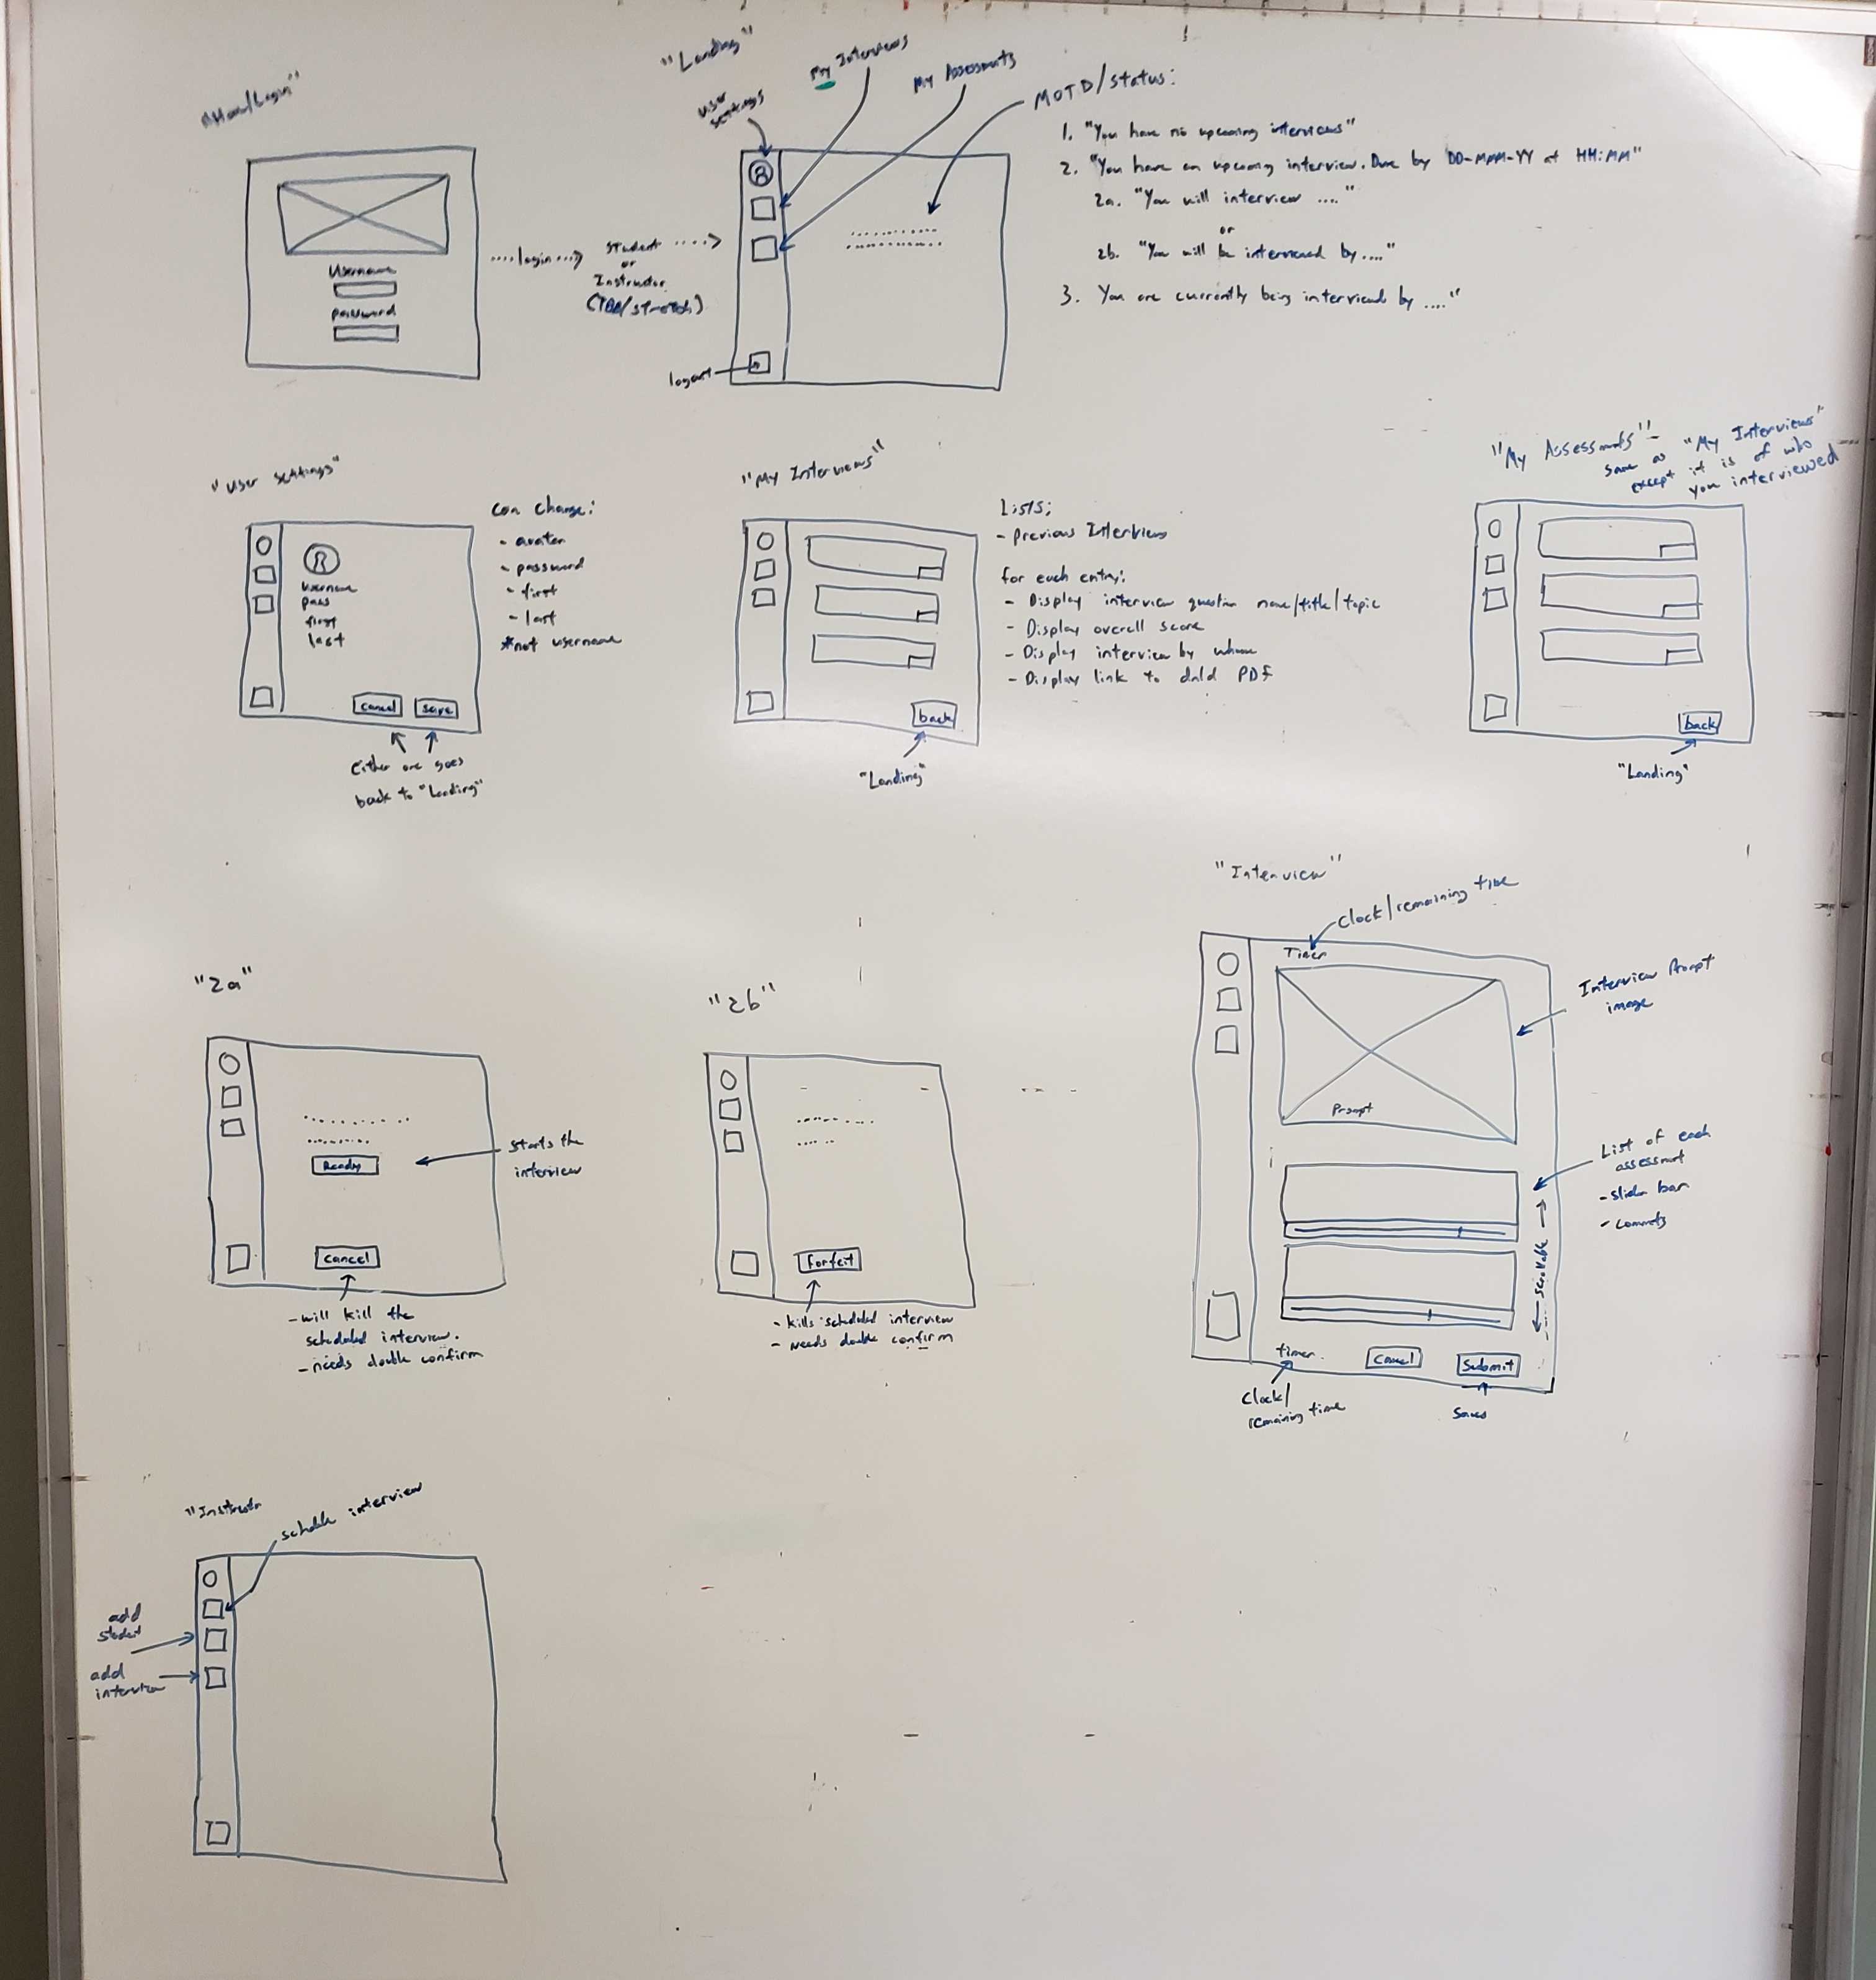 "Home/Login"
Username
password
....login...>
Student
or
Instructor
(TBD/stretch)
....>
"Landing"
user
settings
My Interviews
My Assessments
MOTD/status:
logout
1. "You have no upcoming interviews"
2. "You have an upcoming interview. Due by DD-MMM-YY at HH:MM"
2a. "You will interview ...."
or
2b. "You will be interviewed by...."
3. You are currently being interviewed by ...."
"User settings"
username
pass
first
last
cancel
save
Either one goes
back to "Landing"
can change:
- avatar
- password
- first
- last
*not username
"My Interviews"
back
"Landing"
Lists:
- previous Interviews
for each entry:
- Display interview question name/title/topic
- Display overall score
- Display interview by whom
- Display link to dnld PDF
"My Assessments" -
same as "My Interviews"
except it is of who
you interviewed
back
"Landing"
"2a"
Ready
starts the
interview
cancel
- will kill the
scheduled interview.
- needs double confirm
"2b"
forfeit
- kills scheduled interview
- needs double confirm
"Interview"
Clock/remaining time
Timer
Interview Prompt
image
Prompt
List of each
assessment
- slider bar
- comments
scrollable
timer
Cancel
Submit
Clock/
remaining time
Saves
"Instructor
schedule interview
add
student
add
interview